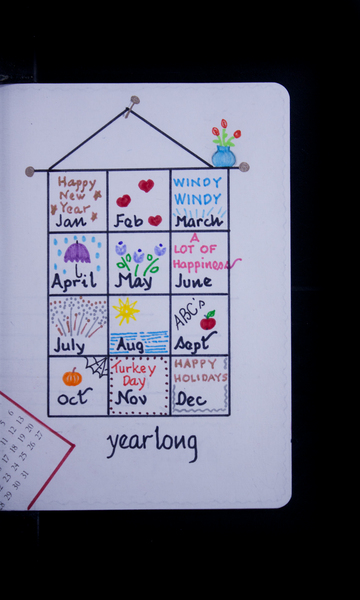 Happy
New
Year
Jan
Feb
WINDY
WINDY
March
April
May
A
LOT OF
Happiness
June
July
Aug
ABC's
Sept
Oct
Turkey
Day
Nov
HAPPY
HOLIDAYS
Dec
yearlong